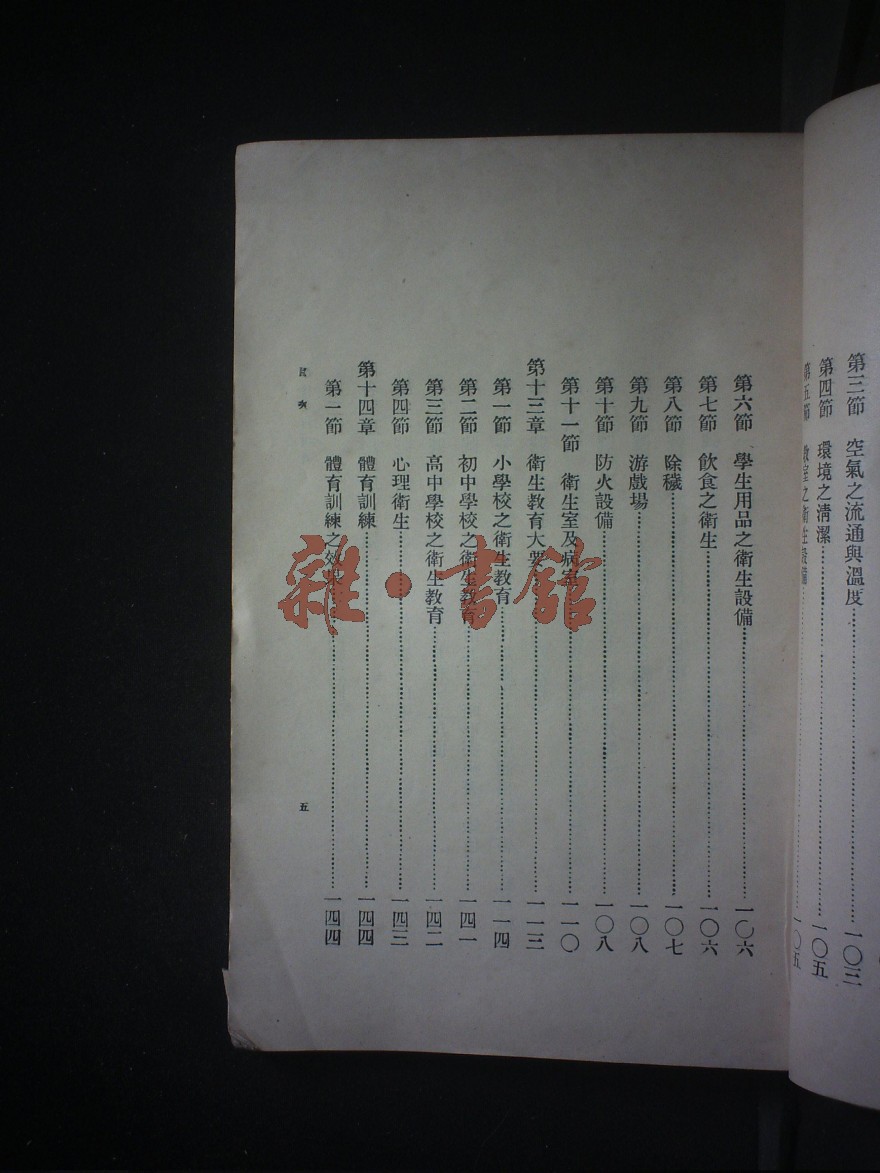 第三節　空氣之流通與溫度……一〇三
第四節　環境之清潔……一〇五
第五節　教室之衛生設備……一〇五
第六節　學生用品之衛生設備……一〇六
第七節　飲食之衛生……一〇六
第八節　除穢……一〇七
第九節　游戲場……一〇八
第十節　防火設備……一〇八
第十一節　衛生室及病室……一一〇
第十三章　衛生教育大要……一一三
第一節　小學校之衛生教育……一一四
第二節　初中學校之衛生教育……一四一
第三節　高中學校之衛生教育……一四二
第四節　心理衛生……一四三
第十四章　體育訓練……一四四
第一節　體育訓練之效果……一四四
目次
五
雜·書館